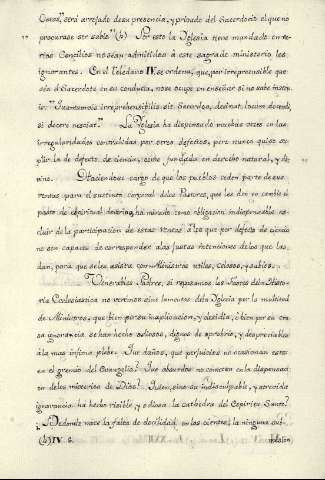 Causa", será arrojado de su presencia, y privado del Sacerdocio el que no
procurase ser sabio" (4) Por esto la Iglesia tiene mandado en va-
rios Concilios no sean admitidos à este sagrado ministerio los
ignorantes. En el Toledano IV. se ordena, que, por irreprensible que
sea el Sacerdote en su conducta, no se ocupe en enseñar si no sabe
si docere nesciat". La Iglesia ha dispensado muchas veces en las
irregularidades contraídas por otros defectos, pero nunca quiso su-
plir la de defecto de ciencia, como fundada en derecho natural, y di-
vino. Haciendose cargo de que los pueblos ceden parte de sus
rentas para el sustento corporal de los Pastores, que les den en cambio el
pasto de espiritual doctrina, ha mirado como obligacion indispensable
de la participacion de estas rentas à los que por defecto de ciencia
no son capaces de corresponder à las justas intenciones de los que las
dan, para que se les asista con Ministros utiles, celosos, y sabios.
Venerables Padres, si repasamos los Fastos de la Histo-
ria Ecclesiastica no veremos sino lamentos de la Iglesia por la multitud
de Ministros, que bien por su inaplicacion, y desidia, ò bien por su cra-
sa ignorancia se han hecho odiosos, dignos de oprobrio, y despreciables
à la mas infima plebe. Que daños, que perjuicios no ocasionan estos
en el gremio del Evangelio? Que absurdos no cometen en la dispensacion
de los misterios de Dios? Quien, sino su indisculpable, y
ignorancia ha hecho risible, y odiosa la cathedra del Espiritu Santo?
¿De donde nace la falta de docilidad en las gentes, la ninguna sub-
(4) IV. 6. mision